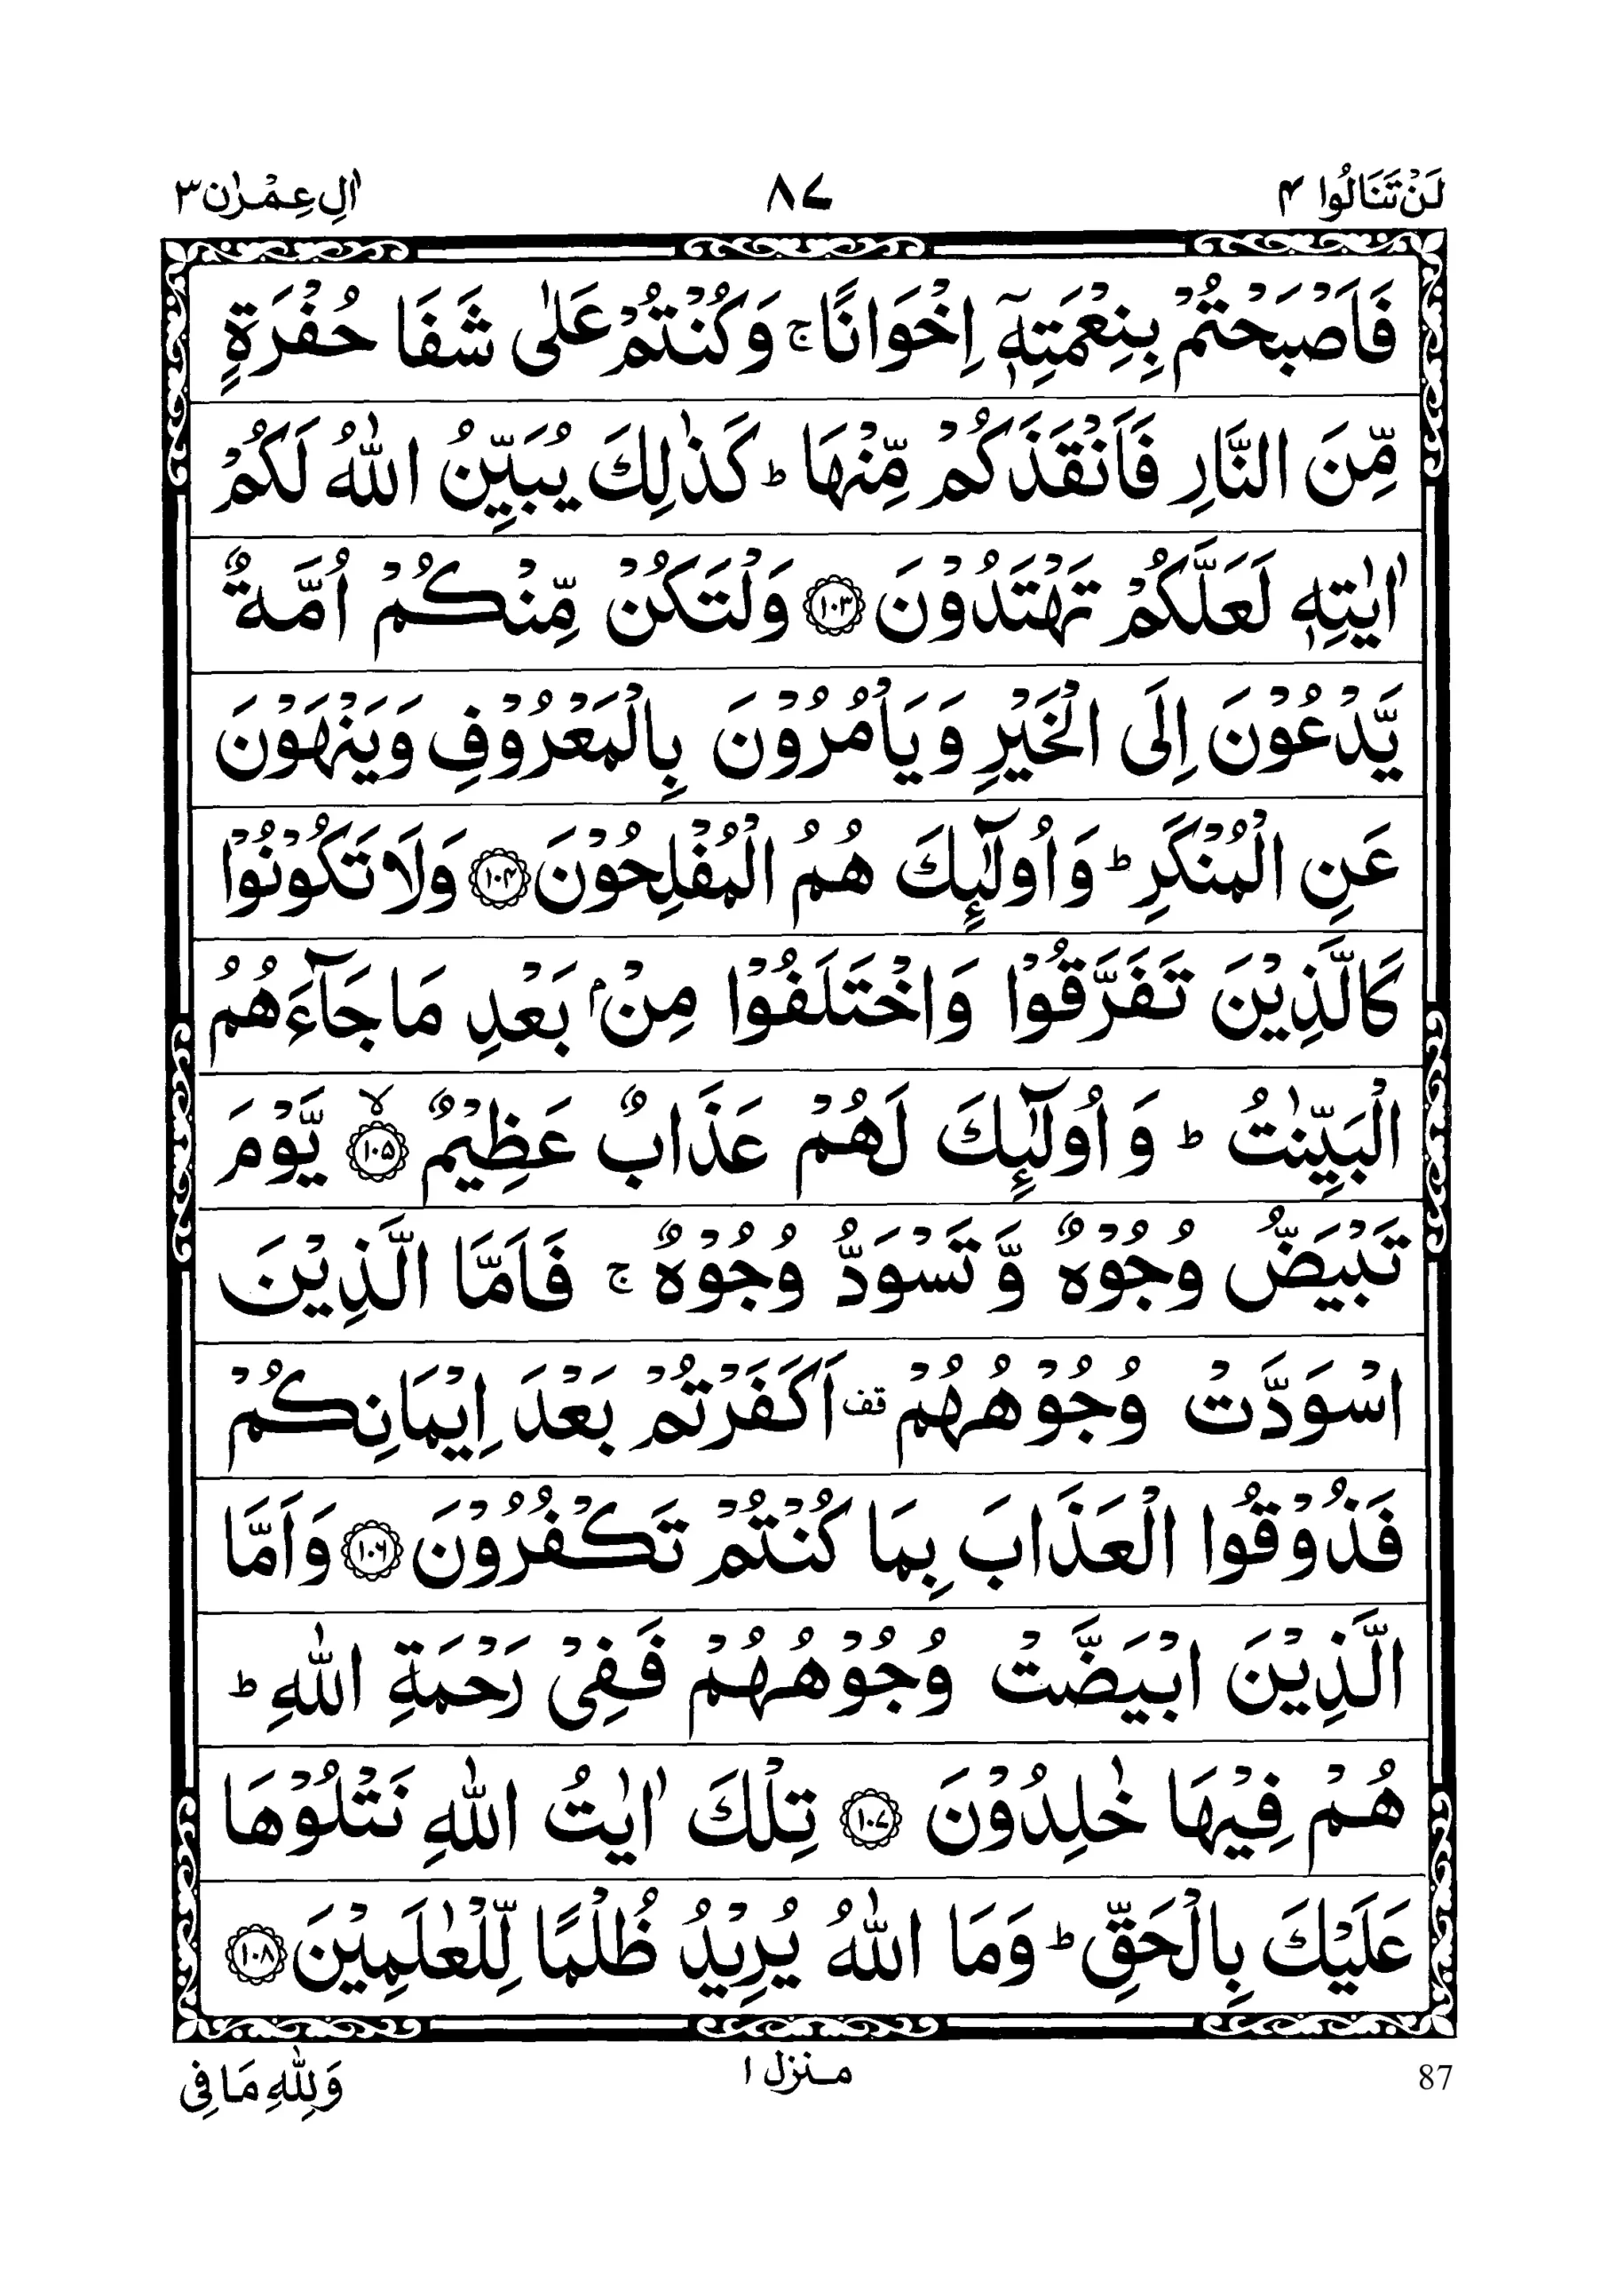 لَنْ تَنَالُوا ۴
۸۷
اٰلِ عِمْرٰن ۳
فَاَصْبَحْتُمْ بِنِعْمَتِهٖۤ اِخْوَانًا ۚ وَكُنْتُمْ عَلٰى شَفَا حُفْرَةٍ
مِّنَ النَّارِ فَاَنْقَذَكُمْ مِّنْهَا ؕ كَذٰلِكَ يُبَيِّنُ اللّٰهُ لَكُمْ
اٰيٰتِهٖ لَعَلَّكُمْ تَهْتَدُوْنَ ﴿۱۰۳﴾ وَلْتَكُنْ مِّنْكُمْ اُمَّةٌ
يَّدْعُوْنَ اِلَى الْخَيْرِ وَيَاْمُرُوْنَ بِالْمَعْرُوْفِ وَيَنْهَوْنَ
عَنِ الْمُنْكَرِ ؕ وَاُولٰٓئِكَ هُمُ الْمُفْلِحُوْنَ ﴿۱۰۴﴾ وَلَا تَكُوْنُوْا
كَالَّذِيْنَ تَفَرَّقُوْا وَاخْتَلَفُوْا مِنْۢ بَعْدِ مَا جَآءَهُمُ
الْبَيِّنٰتُ ؕ وَاُولٰٓئِكَ لَهُمْ عَذَابٌ عَظِيْمٌ ﴿۱۰۵﴾ۙ يَّوْمَ
تَبْيَضُّ وُجُوْهٌ وَّتَسْوَدُّ وُجُوْهٌ ۚ فَاَمَّا الَّذِيْنَ
اسْوَدَّتْ وُجُوْهُهُمْ قف اَكَفَرْتُمْ بَعْدَ اِيْمَانِكُمْ
فَذُوْقُوا الْعَذَابَ بِمَا كُنْتُمْ تَكْفُرُوْنَ ﴿۱۰۶﴾ وَاَمَّا
الَّذِيْنَ ابْيَضَّتْ وُجُوْهُهُمْ فَفِيْ رَحْمَةِ اللّٰهِ ؕ
هُمْ فِيْهَا خٰلِدُوْنَ ﴿۱۰۷﴾ تِلْكَ اٰيٰتُ اللّٰهِ نَتْلُوْهَا
عَلَيْكَ بِالْحَقِّ ؕ وَمَا اللّٰهُ يُرِيْدُ ظُلْمًا لِّلْعٰلَمِيْنَ ﴿۱۰۸﴾
87
منزل ۱
وَلِلّٰهِ مَا فِي